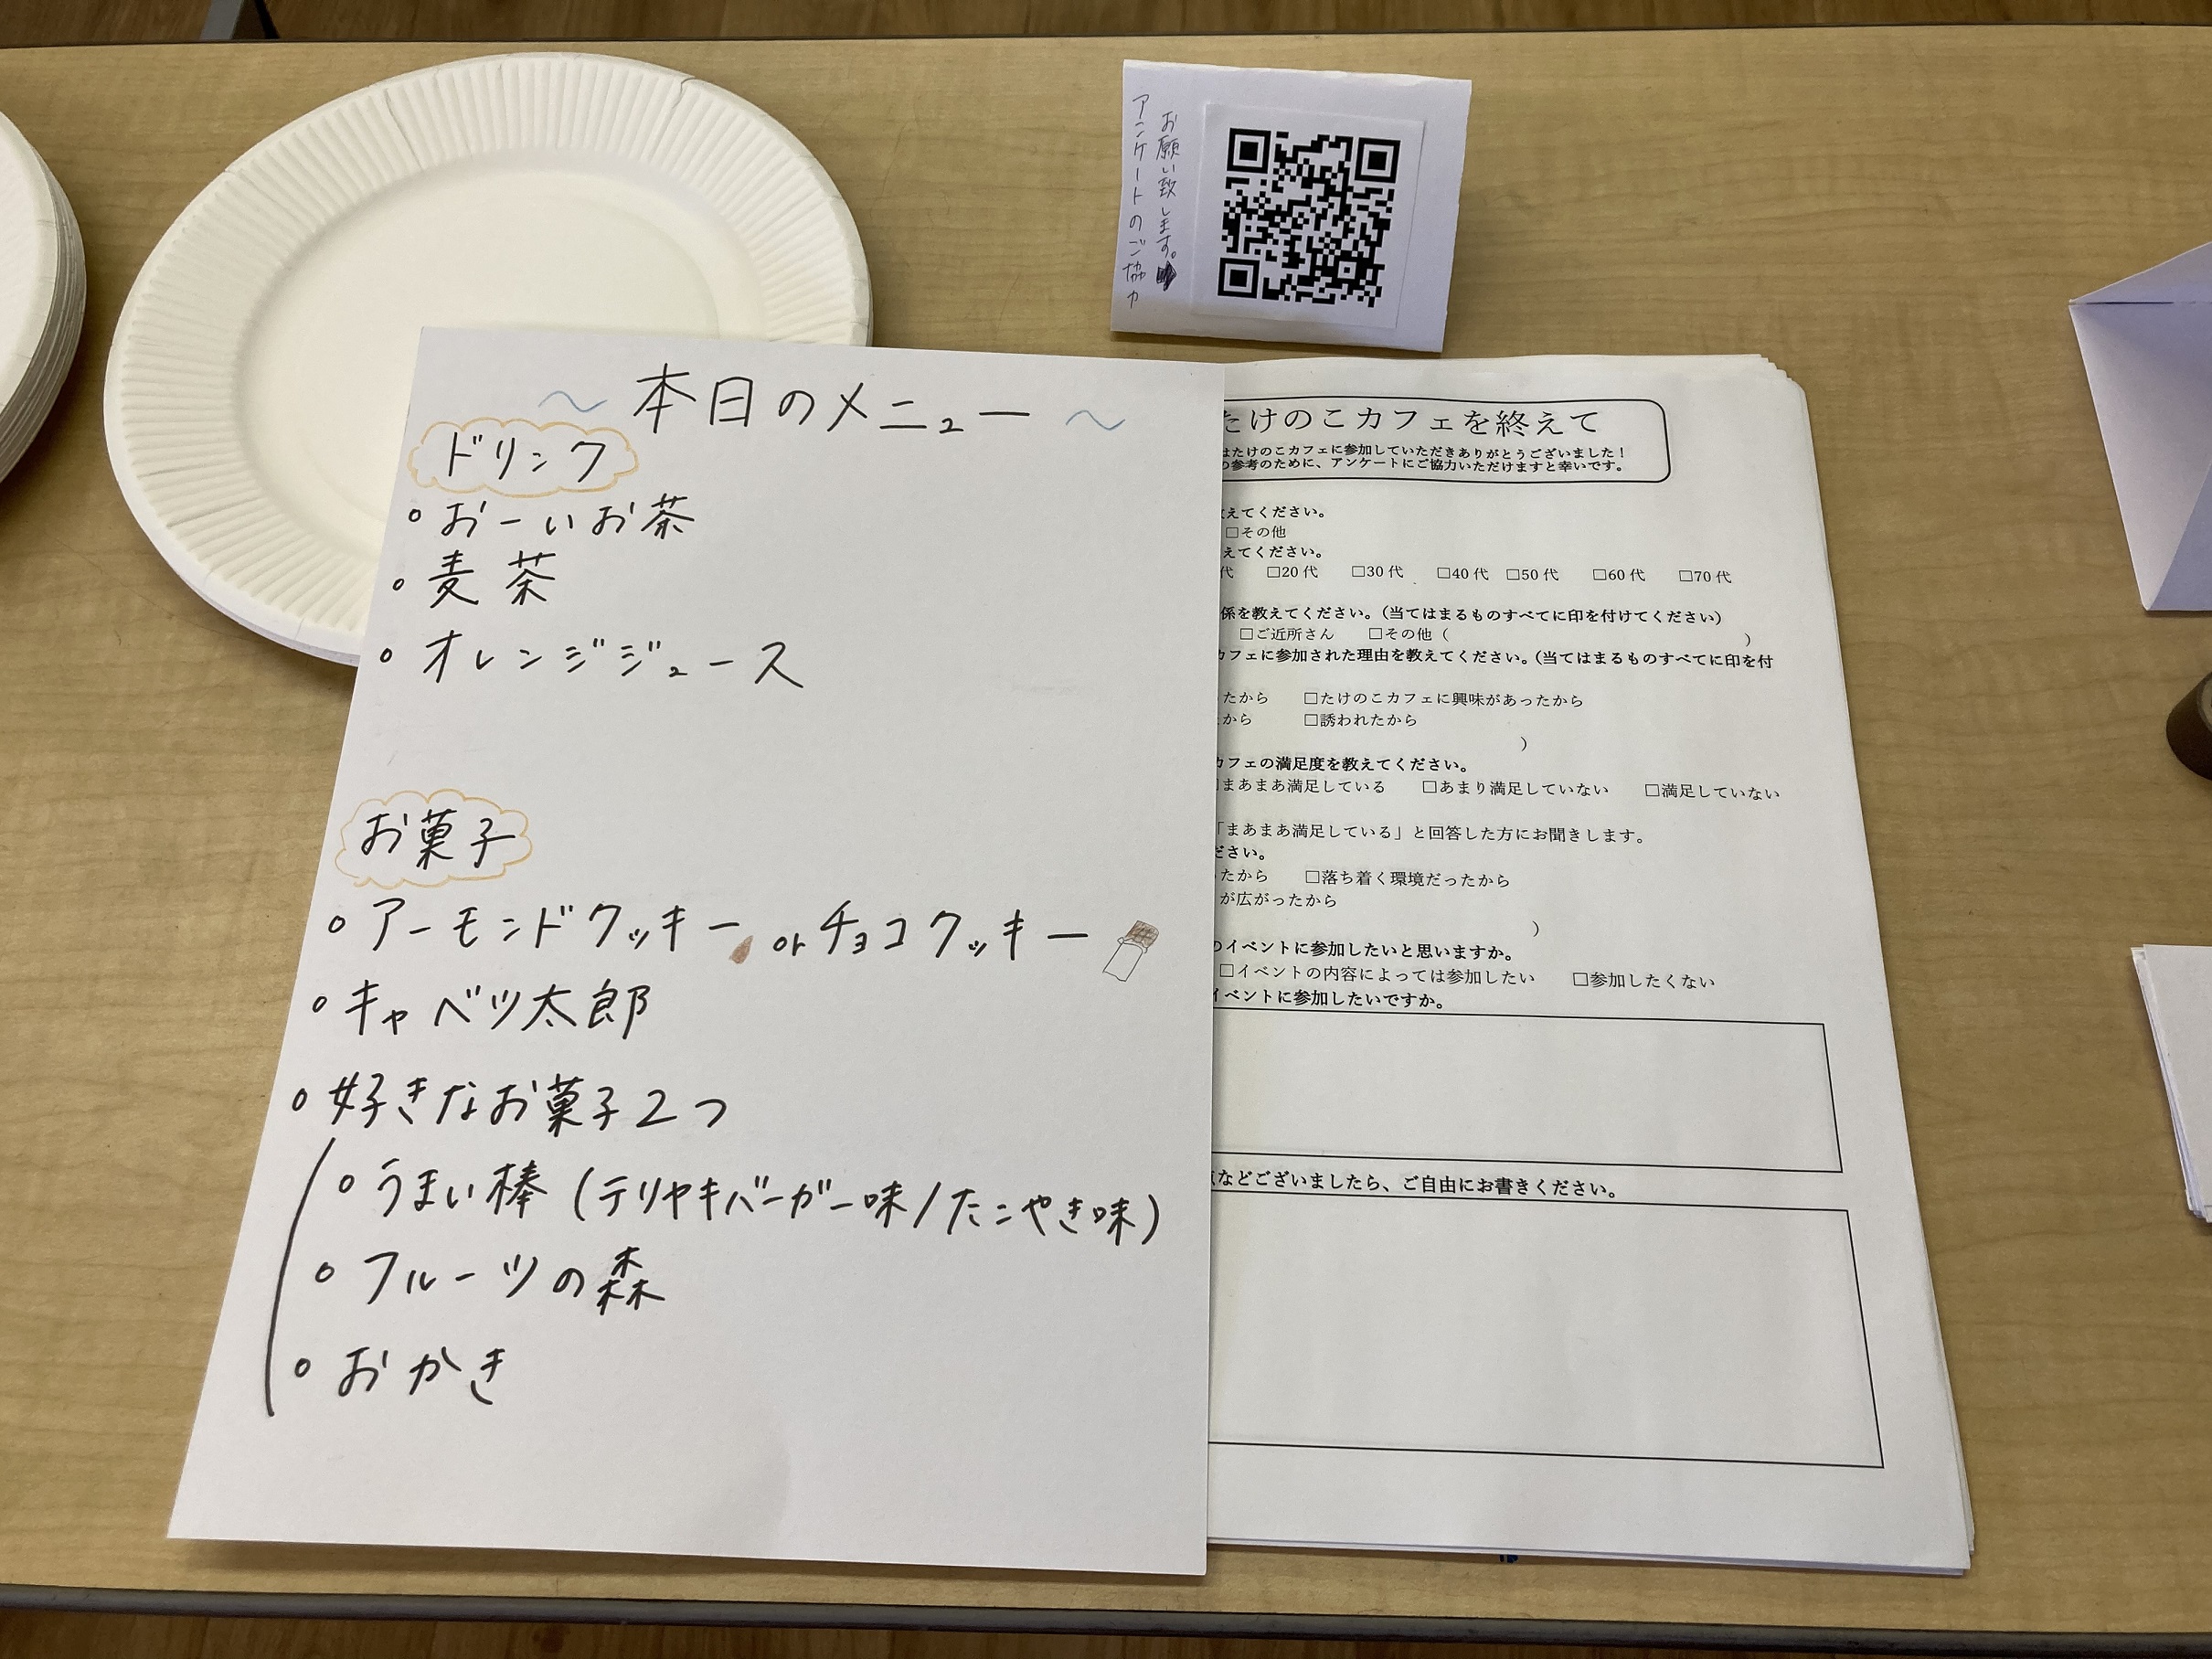 ～本日のメニュー～
ドリンク
・おーいお茶
・麦茶
・オレンジジュース
お菓子
・アーモンドクッキー or チョコクッキー
・キャベツ太郎
・好きなお菓子2つ
・うまい棒(テリヤキバーガー味/たこやき味)
・フルーツの森
・おかき
アンケートのご協力
お願い致します。
たけのこカフェを終えて
はたけのこカフェに参加していただきありがとうございました！
の参考のために、アンケートにご協力いただけますと幸いです。
えてください。
□その他
えてください。
代 □20代 □30代 □40代 □50代 □60代 □70代
係を教えてください。(当てはまるものすべてに印を付けてください)
□ご近所さん □その他（ ）
カフェに参加された理由を教えてください。(当てはまるものすべてに印を付
たから □たけのこカフェに興味があったから
から □誘われたから
）
カフェの満足度を教えてください。
□まあまあ満足している □あまり満足していない □満足していない
「まあまあ満足している」と回答した方にお聞きします。
ださい。
たから □落ち着く環境だったから
が広がったから
）
のイベントに参加したいと思いますか。
□イベントの内容によっては参加したい □参加したくない
イベントに参加したいですか。
などございましたら、ご自由にお書きください。